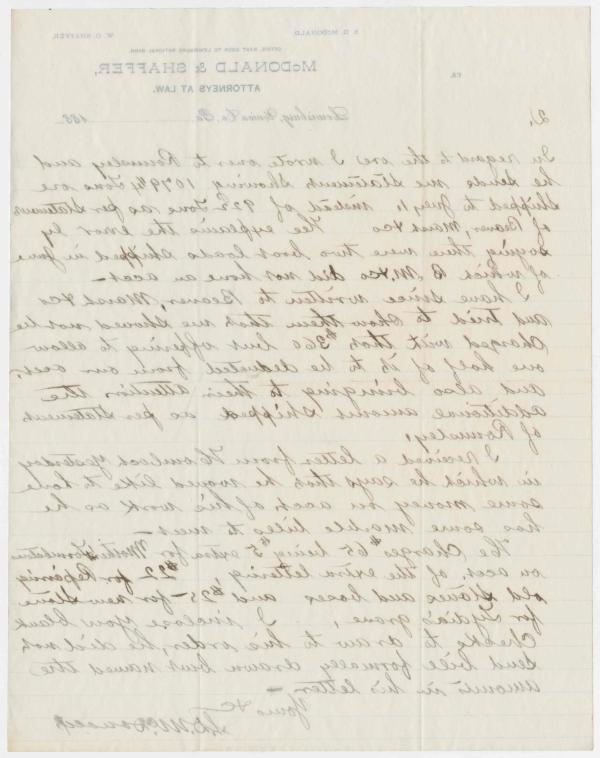 A. D. McDONALD W. O. SHAFFER.
OFFICE, NEXT DOOR TO LEWISBURG NATIONAL BANK.
McDONALD & SHAFFER,
ATTORNEYS AT LAW.
Lewisburg, Union Co. Pa. 188
2/,
In regard to the ore I wrote over to Romaley and
he sends me statement showing 1079¼ Tons ore
shipped to July 1, instead of 922 Tons as per statement
of Beaver, Marsh & Co He explains the error by
saying there were two boat loads shipped in June
of which B M. & Co did not have an acct—
I have since written to Beaver, Marsh & Co
and tried to show them that we should not be
charged with that $360 but offering to allow
one half of it to be deducted from our acct.
and also bringing to their attention the
additional amount shipped as per statement
of Romaley.
I received a letter from yesterday
in which he says that he would like to have
some money on acct. of his work as he
has some marble bills to meet—
He charges $65 being $5 extra for Mother's
on acct. of the extra lettering, $22 for Repairing
old stones and bases and $25— for new stone
for Lydia's grave, I inclose you blank
checks to draw to his order, he did not
send bill formally drawn but named the
amount in his letter—
Yours &c